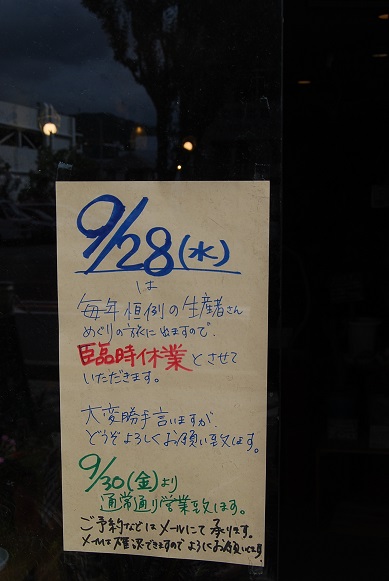 9/28(水)
は
毎年恒例の生産者さん
めぐりの旅に出ますので、
臨時休業とさせて
いただきます。
大変勝手言いますが、
どうぞよろしくお願い致します。
9/30(金)より
通常通り営業致します。
ご予約などはメールにて承ります。
メールは確認できますのでよろしくお願いします